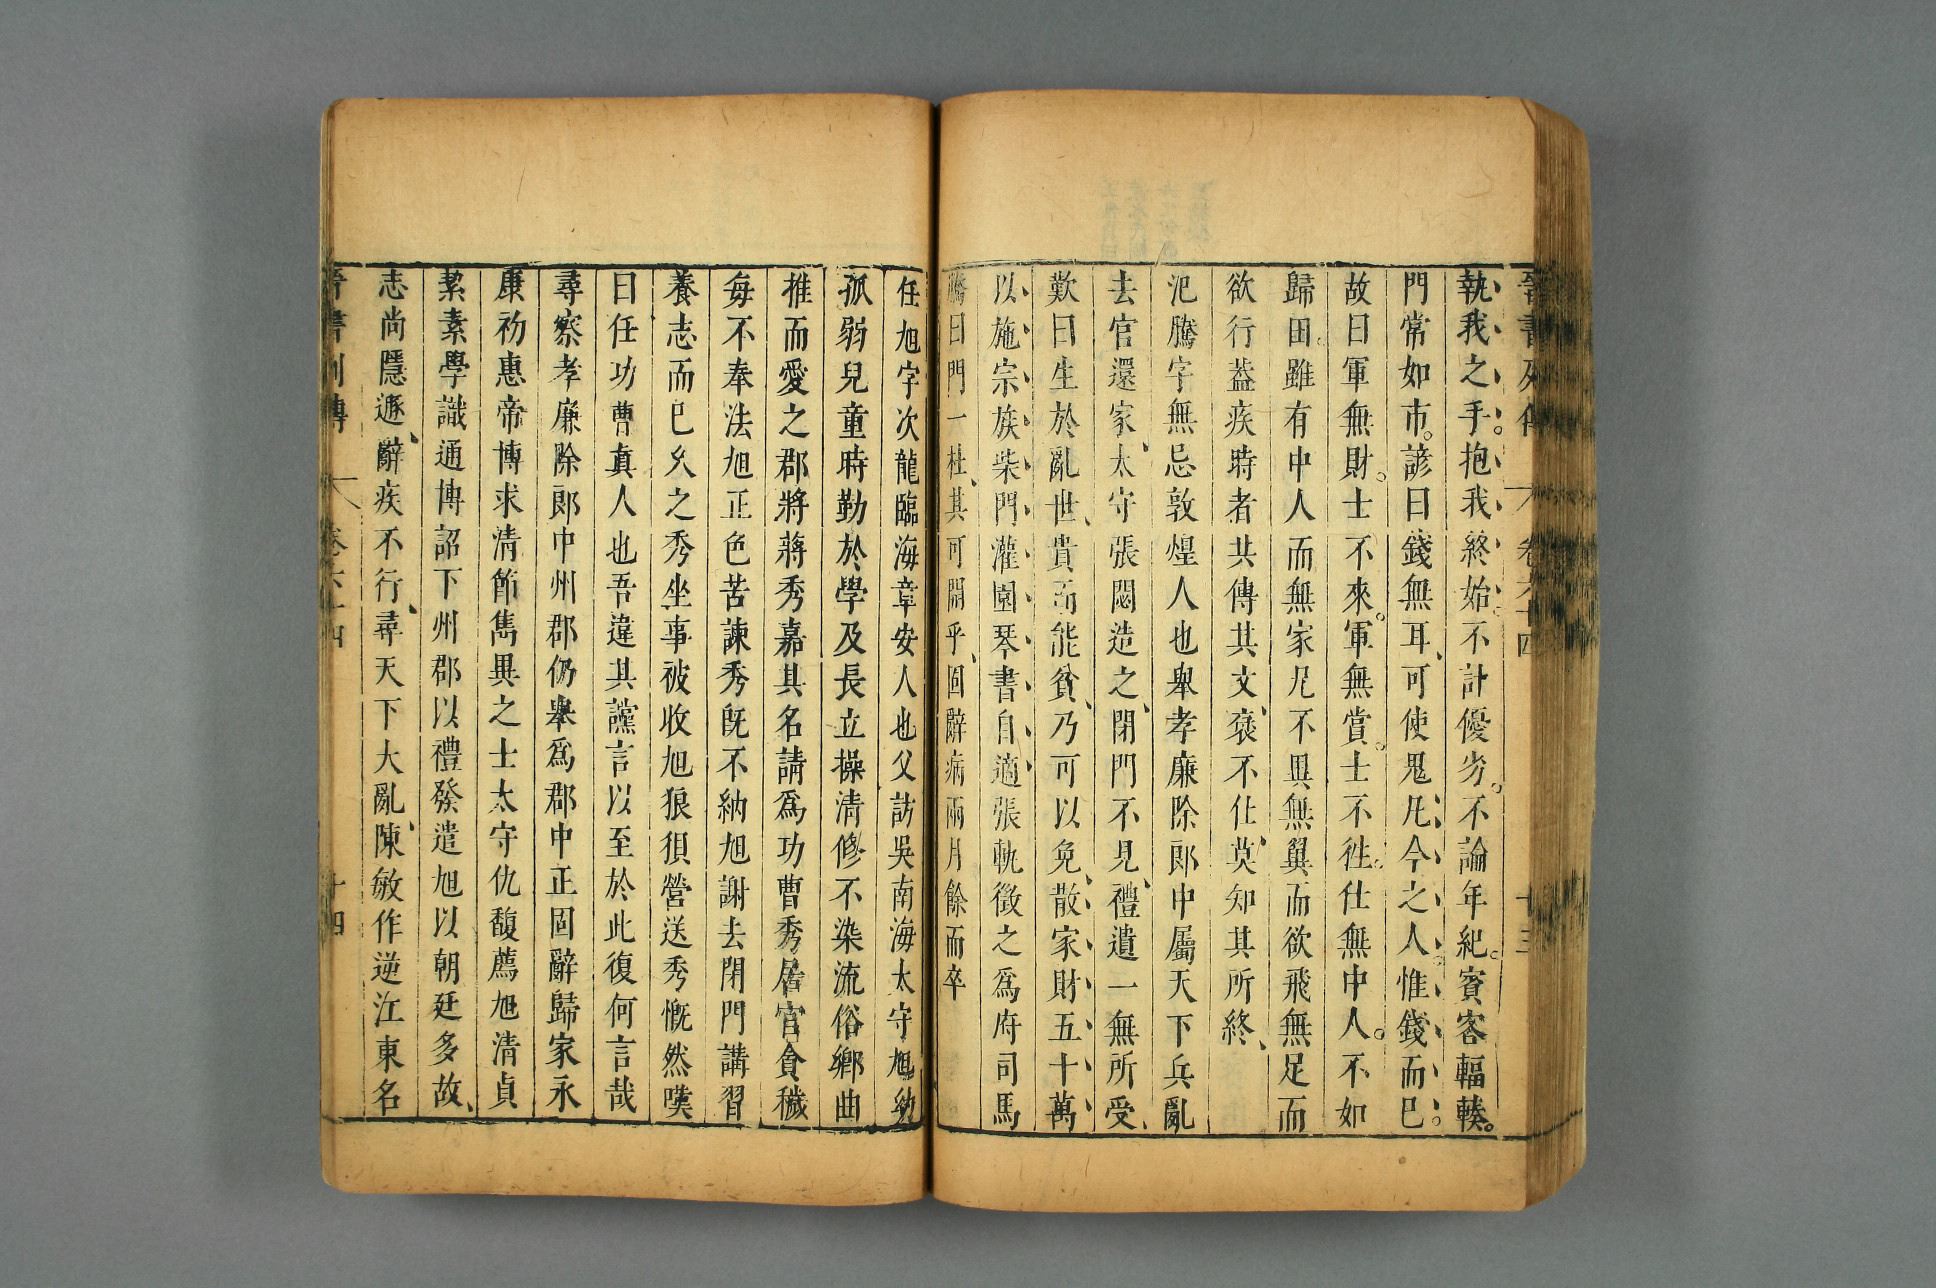 晉書列傳 卷六十四 十三
執我之手抱我終始不計優劣不論年紀賓客輻輳
門常如市諺曰錢無耳可使鬼凡今之人惟錢而已
故曰軍無財士不來軍無賞士不往仕無中人不如
歸田雖有中人而無家兄不異無翼而欲飛無足而
欲行葢疾時者共傳其文襃不仕莫知其所終
氾騰字無忌敦煌人也舉孝廉除郎中屬天下兵亂
去官還家太守張閟造之閉門不見禮遺一無所受
歎曰生於亂世貴而能貧乃可以免散家財五十萬
以施宗族柴門灌園琴書自適張軌徵之爲府司馬
騰曰門一杜其可開乎固辭病兩月餘而卒
任旭字次龍臨海章安人也父訪吳南海太守旭幼
孤弱兒童時勤於學及長立操清修不染流俗鄉曲
推而愛之郡將蔣秀嘉其名請爲功曹秀居官貪穢
每不奉法旭正色苦諫秀旣不納旭謝去閉門講習
養志而已久之秀坐事被收旭狼狽營送秀慨然嘆
曰任功曹真人也吾違其讜言以至於此復何言哉
尋察孝廉除郎中州郡仍舉爲郡中正固辭歸家永
康初惠帝博求清節雋異之士太守仇馥薦旭清貞
絜素學識通博詔下州郡以禮發遣旭以朝廷多故
志尚隱遯辭疾不行尋天下大亂陳敏作逆江東名
晉書列傳 卷六十四 十四